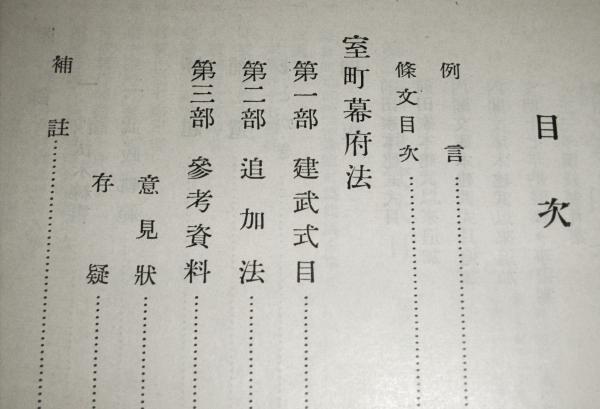 目次
例言
條文目次
室町幕府法
第一部 建武式目
第二部 追加法
第三部 參考資料
意見狀
存疑
補註